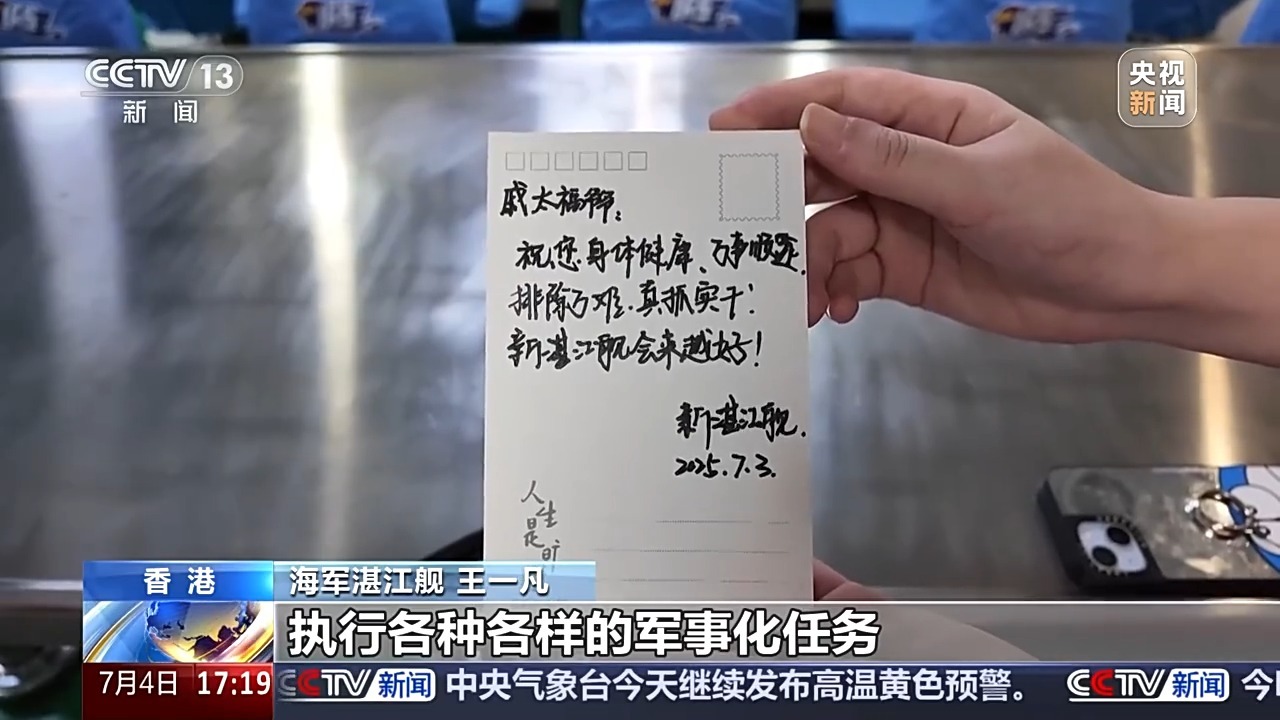 CCTV 13
新闻
央视
新闻
戚太福师:
祝您身体健康、万事顺意.
排除万难.真抓实干!
新湛江舰会来越好!
新湛江舰.
2025.7.3.
人生是旷
香港
海军湛江舰 王一凡
执行各种各样的军事化任务
7月4日 17:19
CCTV新闻 中央气象台今天继续发布高温黄色预警。 CCTV新闻